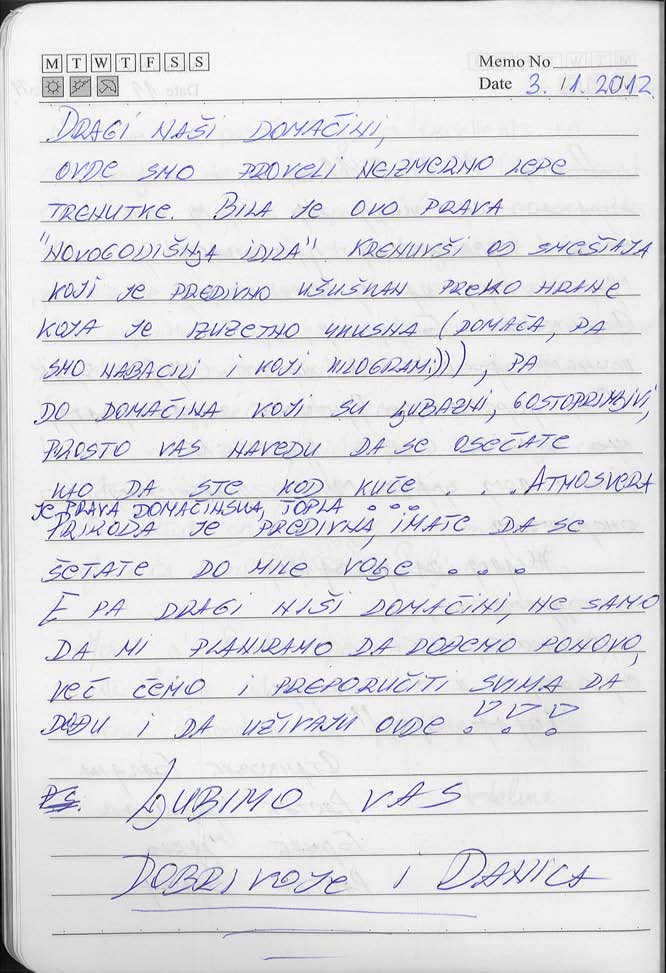 M T W T F S S
Memo No
Date 3. 11. 2012
DRAGI NAŠI DOMAĆINI,
OVDE SMO PROVELI NEIZMERNO LEPE
TRENUTKE. BILA JE OVO PRAVA
"NOVOGODIŠNJA IDILA". KRENUVŠI OD SMEŠTAJA
KOJI JE PREDIVNO UŠUŠKAN PREKO HRANE
KOJA JE IZUZETNO UKUSNA (DOMAĆA, PA
SMO NABACILI I KOJI KILOGRAM:))), PA
DO DOMAĆINA KOJI SU LJUBAZNI, GOSTOPRIMLJIVI,
PROSTO VAS NAVEDU DA SE OSEĆATE
KAO DA STE KOD KUĆE . . . ATMOSVERA
JE PRAVA DOMAĆINSKA, TOPLA . . .
PRIRODA JE PREDIVNA, IMATE DA SE
ŠETATE DO MILE VOLJE . . .
E PA DRAGI NAŠI DOMAĆINI, NE SAMO
DA MI PLANIRAMO DA DOĐEMO PONOVO,
VEĆ ĆEMO I PREPORUČITI SVIMA DA
DOĐU I DA UŽIVAJU OVDE !!!
LJUBIMO VAS
DOBRIVOJE I DANICA